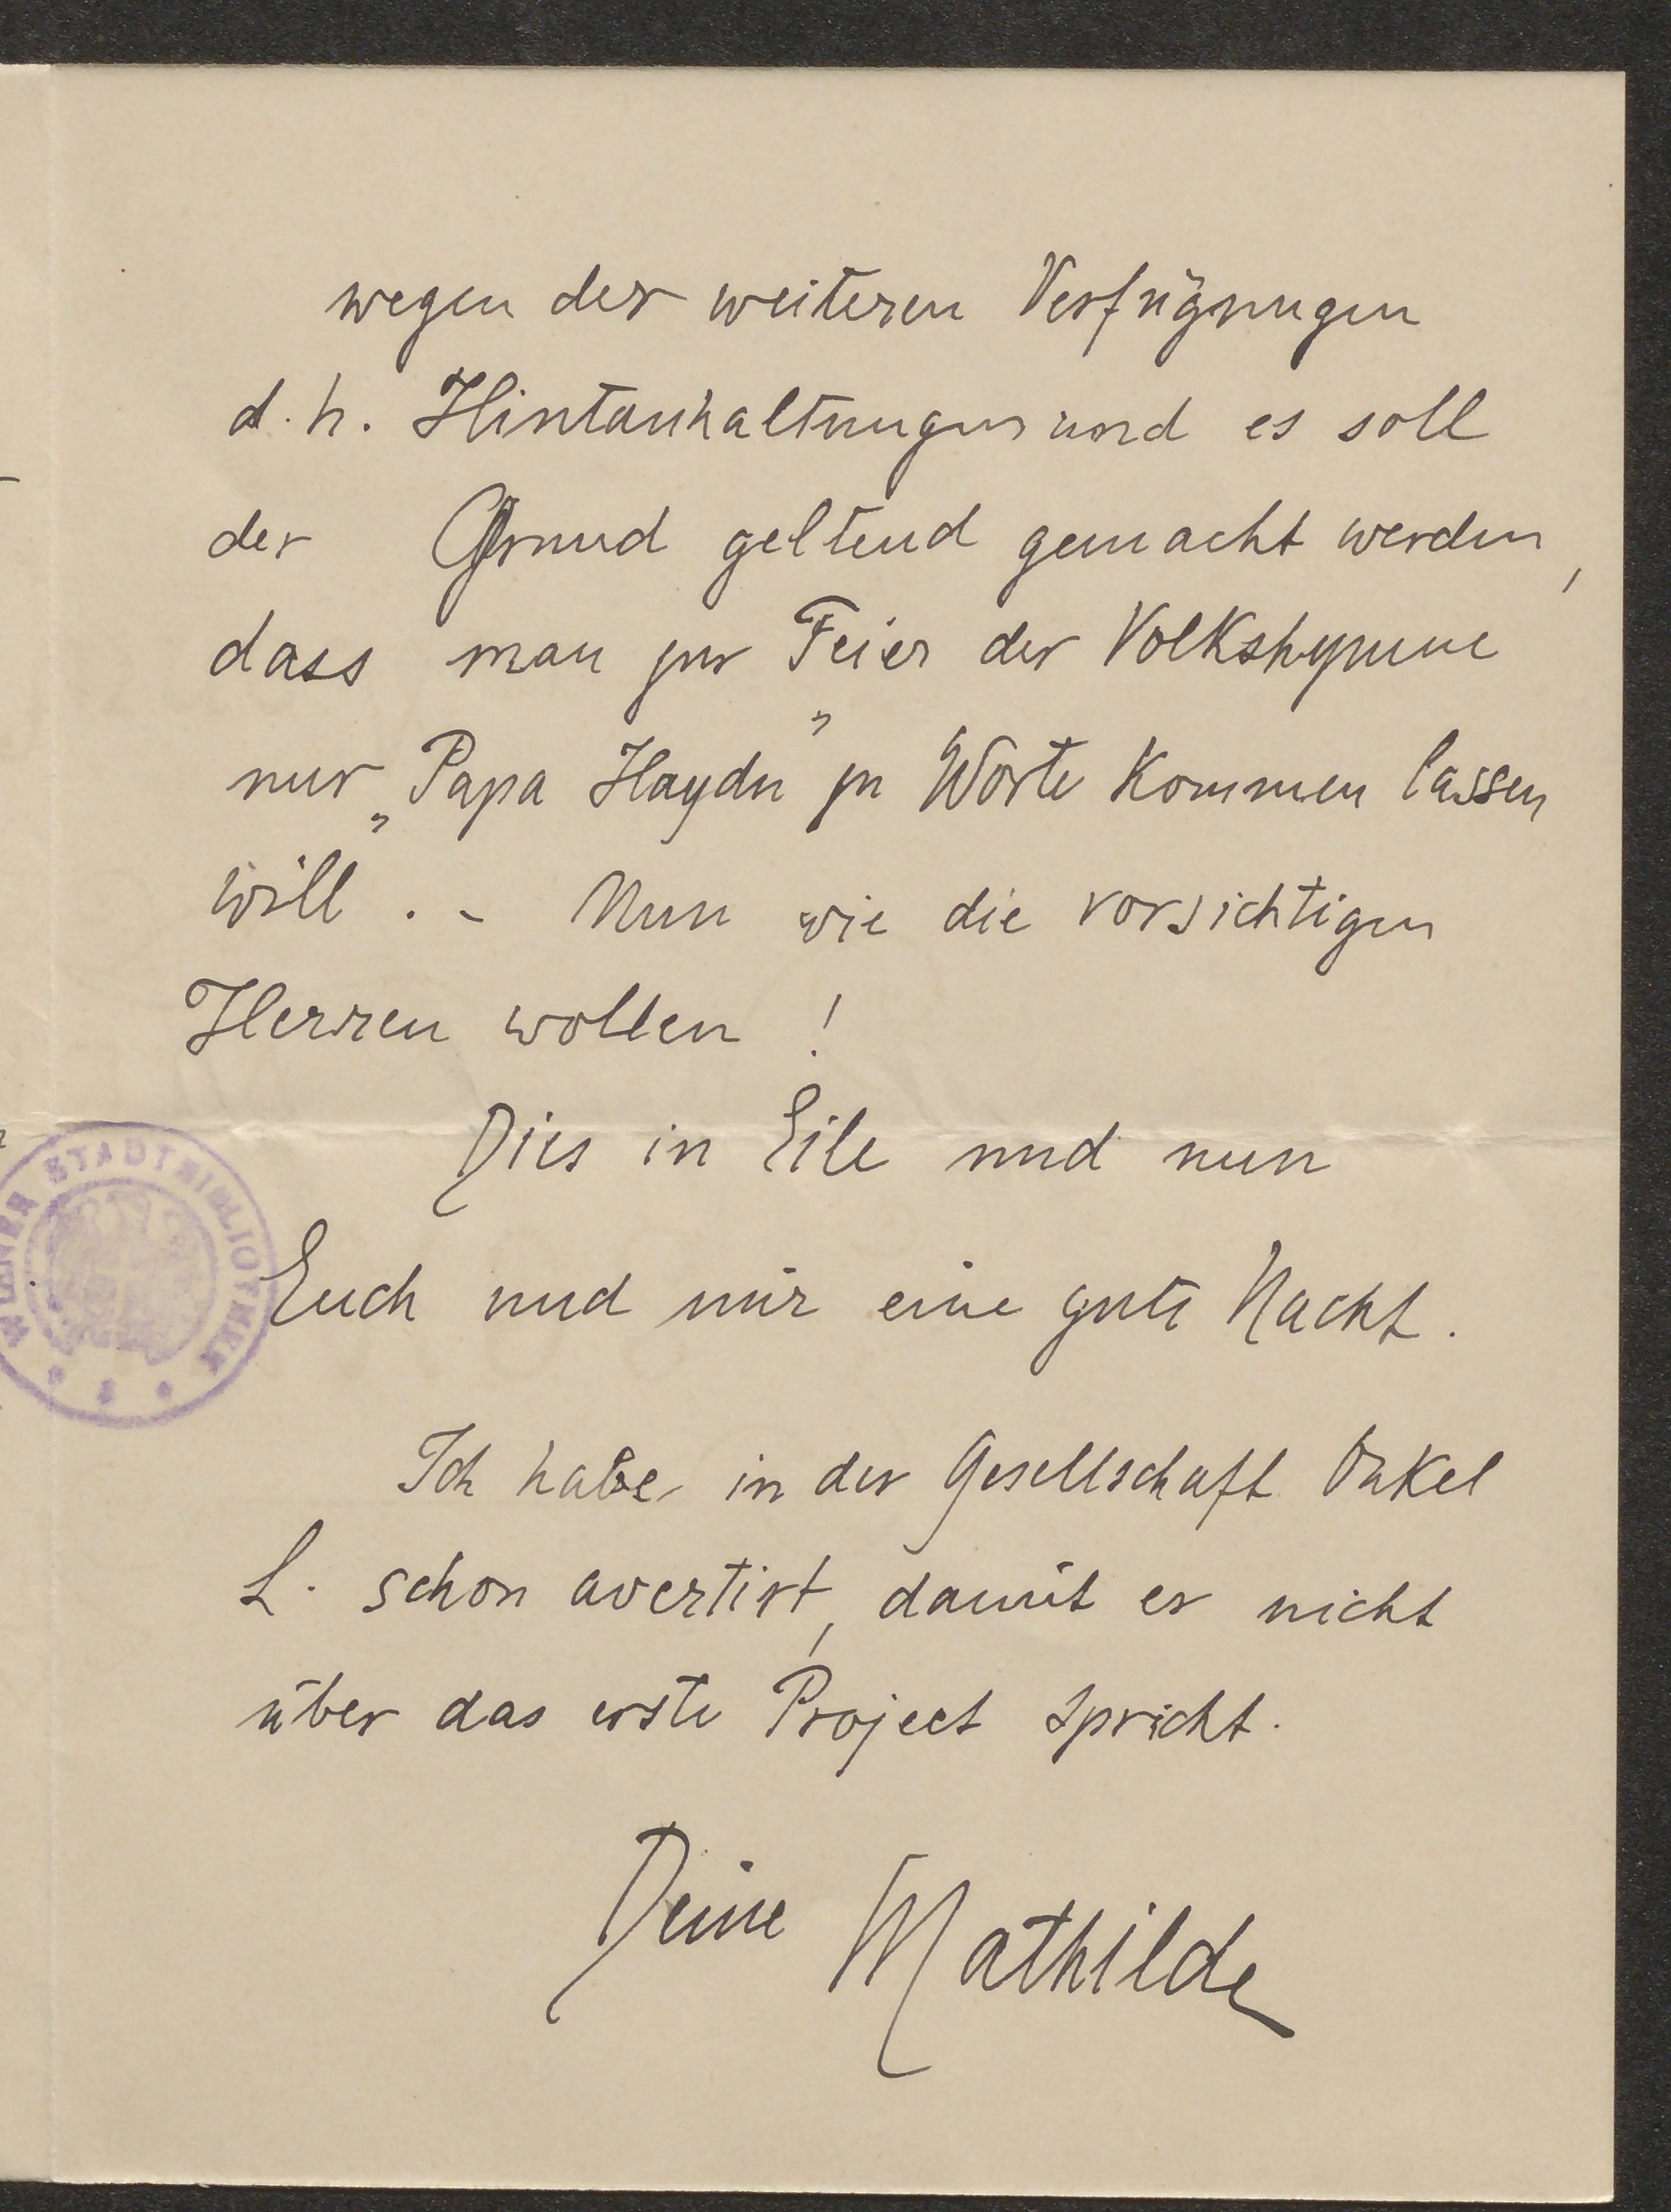 wegen der weiteren Verfügungen
d. h. Hintanhaltungen und es soll
der Grund geltend gemacht werden,
dass man zur Feier der Volkshymne
nur „Papa Haydn” zu Worte kommen lassen
will. - Nun wie die vorsichtigen
Herren wollen!
Dies in Eile und nun
Euch und mir eine gute Nacht.
Ich habe in der Gesellschaft Onkel
L. schon avertirt, damit er nicht
über das erste Project spricht.
Deine Mathilde
WIENER STADTBIBLIOTHEK